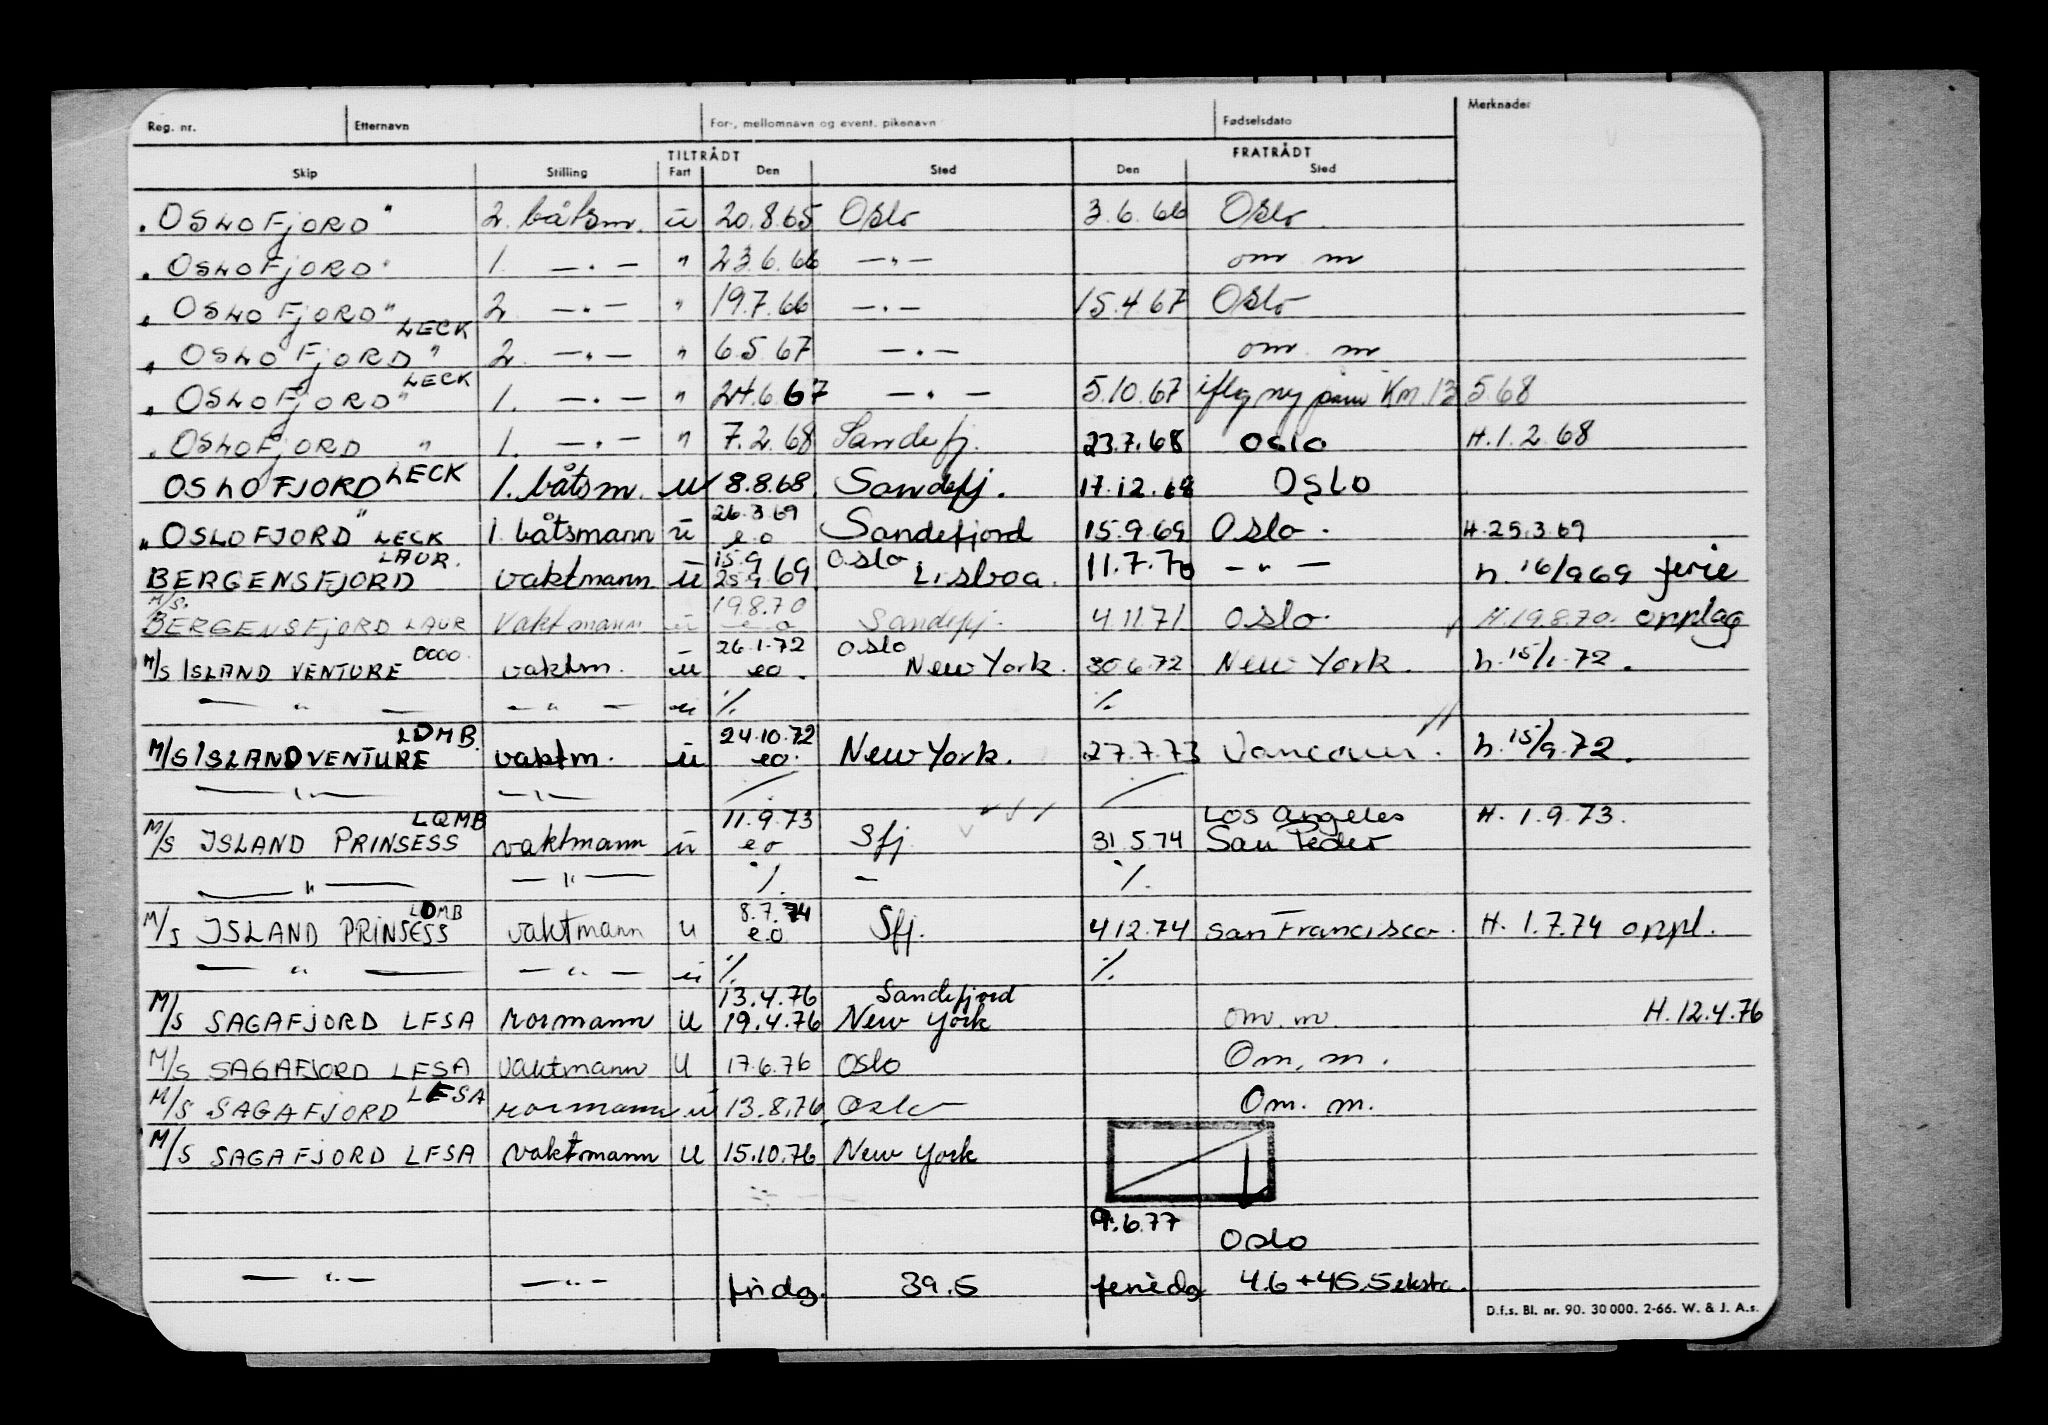 Reg. nr. Etternavn For-, mellomnavn og event. pikenavn Fødselsdato Merknader
TILTRÅDT FRATRÅDT
Skip Stilling Fart Den Sted Den Sted
"OSLOFJORD" 2. båtsm. u 20.8.65 Oslo 3.6.66 Oslo
"OSLOFJORD" 1. — " — " 23.6.66 — " — om m
"OSLOFJORD" 2 — " — " 19.7.66 — " — 15.4.67 Oslo
"OSLOFJORD" LECK 2. — " — " 6.5.67 — " — om. m
"OSLOFJORD" LECK 1. — " — " 24.6.67 — " — 5.10.67 iflg ny Km. 13 5.68
"OSLOFJORD" 1. — " — " 7.2.68 Sandefj. 23.7.68 Oslo H.1.2.68
OSLOFJORD LECK 1. båtsm. u 8.8.68. Sandefj. 17.12.68 Oslo
26.3.69
"OSLOFJORD" LECK 1. båtsmann u e.o Sandefjord 15.9.69 Oslo. H.25.3.69
LAUR. 15.9 Oslo
BERGENSFJORD vaktmann u 25.9.69 Lisboa. 11.7.70 — " — h. 16/9 69 ferie
M/S. 19.8.70
BERGENSFJORD LAUR Vaktmann u e.o Sandefj. 4.11.71 Oslo. H.19.8.70. opplag
26.1.72 Oslo
M/S ISLAND VENTURE OOOO vaktm. u eo. New York. 30.6.72 New York. h. 15/1.72.
— " — — " — u % %
LDMB. 24.10.72
M/S ISLAND VENTURE vaktm. u eo. New York. 27.7.73 h. 15/9.72.
— " — — " — / /
LQMB 11.9.73 Los Angeles H. 1.9.73.
M/S ISLAND PRINSESS vaktmann u e.o Sfj. 31.5.74 San Peder
— " — — " — %. — %.
LDMB 8.7.74
M/S ISLAND PRINSESS vaktmann u e.o Sfj. 4.12.74 San Francisco. H. 1.7.74 oppl.
— " — — " — u % %
13.4.76 Sandefjord
M/S SAGAFJORD LFSA rormann u 19.4.76 New York om. m. H.12.4.76
M/S SAGAFJORD LFSA vaktmann u 17.6.76 Oslo Om. m.
M/S SAGAFJORD LESA rormann u 13.8.76 Oslo Om. m.
M/S SAGAFJORD LFSA vaktmann u 15.10.76 New York
9.6.77 Oslo
— " — — " — fridg. 39.5 feriedg 4.6 + 45.5 ekstra.
D.f.s. Bl. nr. 90. 30 000. 2-66. W. & J. A.s.